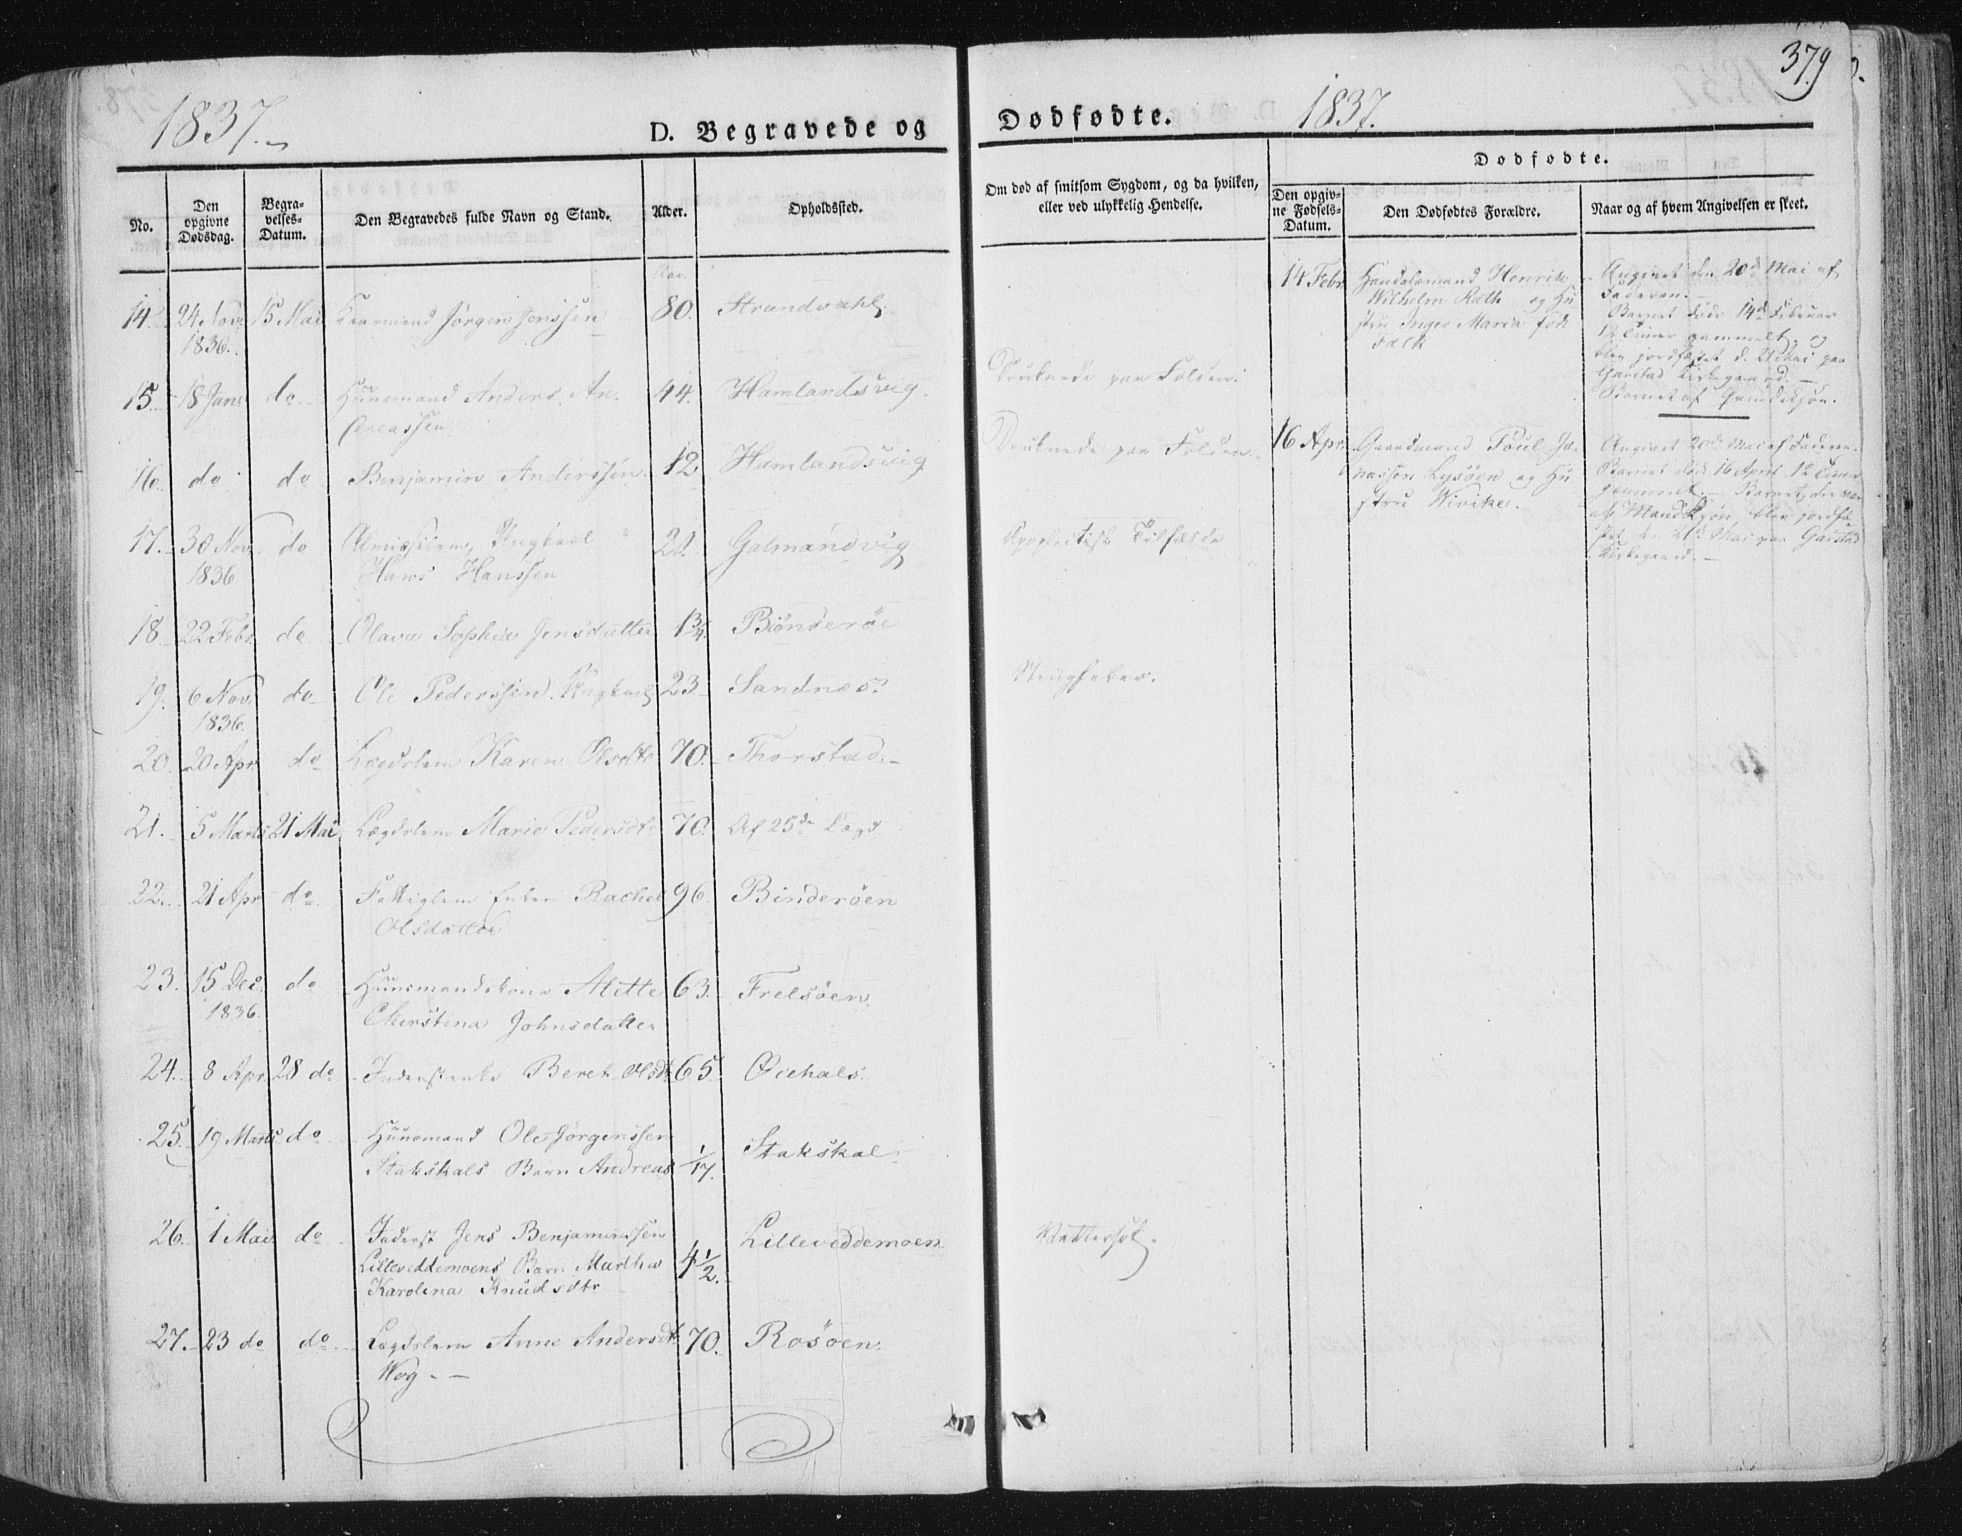 1837.
D. Begravede og
No.
Den opgivne Dødsdag.
Begravelses-Datum.
Den Begravedes fulde Navn og Stand.
Alder.
Opholdssted.
Aar.
14. 24 Nov. 15 Mai Jørgen Jenssen 80. Strandvahl.
1836.
15. 18 Jan. do Huusmand Anders An- 44. Hamlandsvig.
dreassen
16. do do Benjamin Anderssen 12. Hamlandsvig
17. 30 Nov. do Almisselem, Ungkarl Galmandvig
1836 Hans Hanssen
18. 22 Febr. do Olava Sophia Jensdatter 1¾. Binderöe
19. 6 Nov. do Ole Pederssen Ungkarl 23. Sandnæs.
1836.
20. 20 Apr. do Lægdslem Karen Olsdtr 70. Thorstad.
21. 5 Marts 21 Mai Lægdslem Marie Pedersdtr 70. Af 25de Lægd
22. 21 Apr do Fattiglem Enken Rachel 96. Binderöen
Olsdatter
23. 15 Dec. do Huusmandskone Mette 63. Frelsöen
1836. Christina Johnsdatter
24. 8 Apr. 28 do Inderstenke Beret Olsdtr 65. Øiehals.
25. 19 Marts do Huusmand Ole Jørgenssen
Stakskals Barn Andreas 1/17. Stakskal
26. 1 Mai do Inderst Jens Benjaminssen Lilleveddemoen
Lilleveddemoens Barn Martha 4½.
Karolina Knudsdtr
27. 23 do do Lægdslem Anne Andersdtr 70. Rosöen.
Wog.
379
Dødfødte. 1837.
Om død af smitsom Sygdom, og da hvilken,
eller ved ulykkelig Hendelse.
Dødfødte.
Den opgivne Fødsels-Datum.
Den Dødfødtes Forældre.
Naar og af hvem Angivelsen er skeet.
Druknede paa Folden.
Druknede paa Folden.
Apoplectisk Tilfælde
Vattersot.
14 Febr. Handelsmand Henrik
Wilhelm Rath og Hu
stru Inger Maria født
Falk
Angivet den 20de Mai af
Faderen.
Barnet døde 14de Februar
12 Timer gammelt, og
blev jordfæstet d. 21 Mai paa
Garstad Kirkegaard.
Barnet af Qvindekjøn.
16 Apr. Gaardmand Poul Jo-
nassen Lysöen og Hu
stru Wivike.
Angivet 20de Mai af Faderen.
Barnet død 16 April 12 Timer
gammelt. Barnet, der var
af Mandkjön, blev jordfæ-
stet den 21de Mai paa Garstad
Kirkegaard.